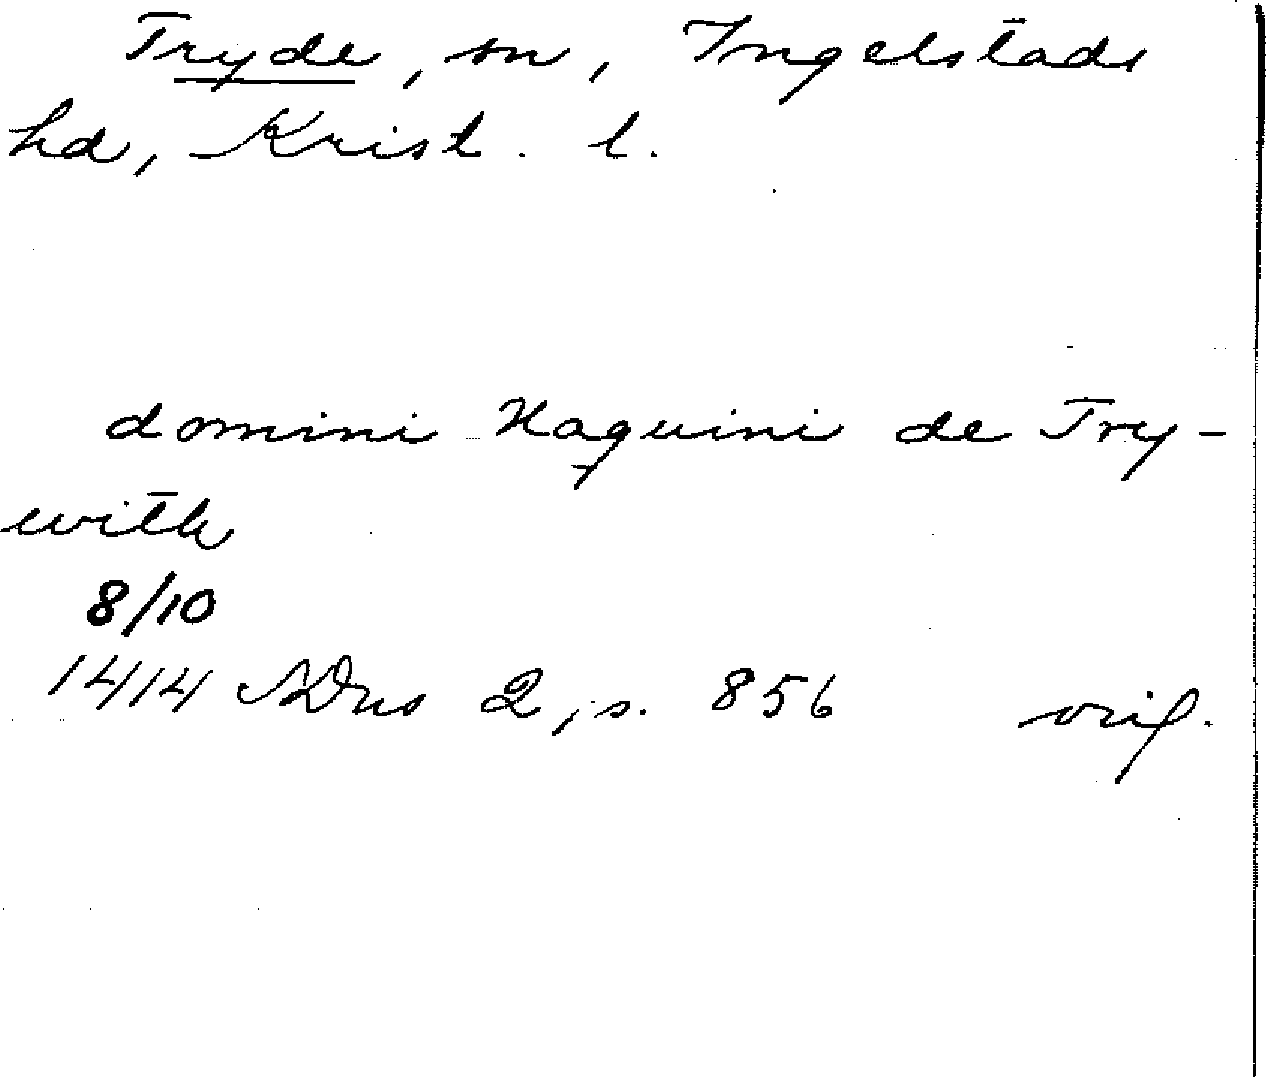 Tryde, sn, Ingelstads
hd, Krist. l.
domini Haquini de Try-
with
8/10
1414 SDns 2, s. 856 orig.